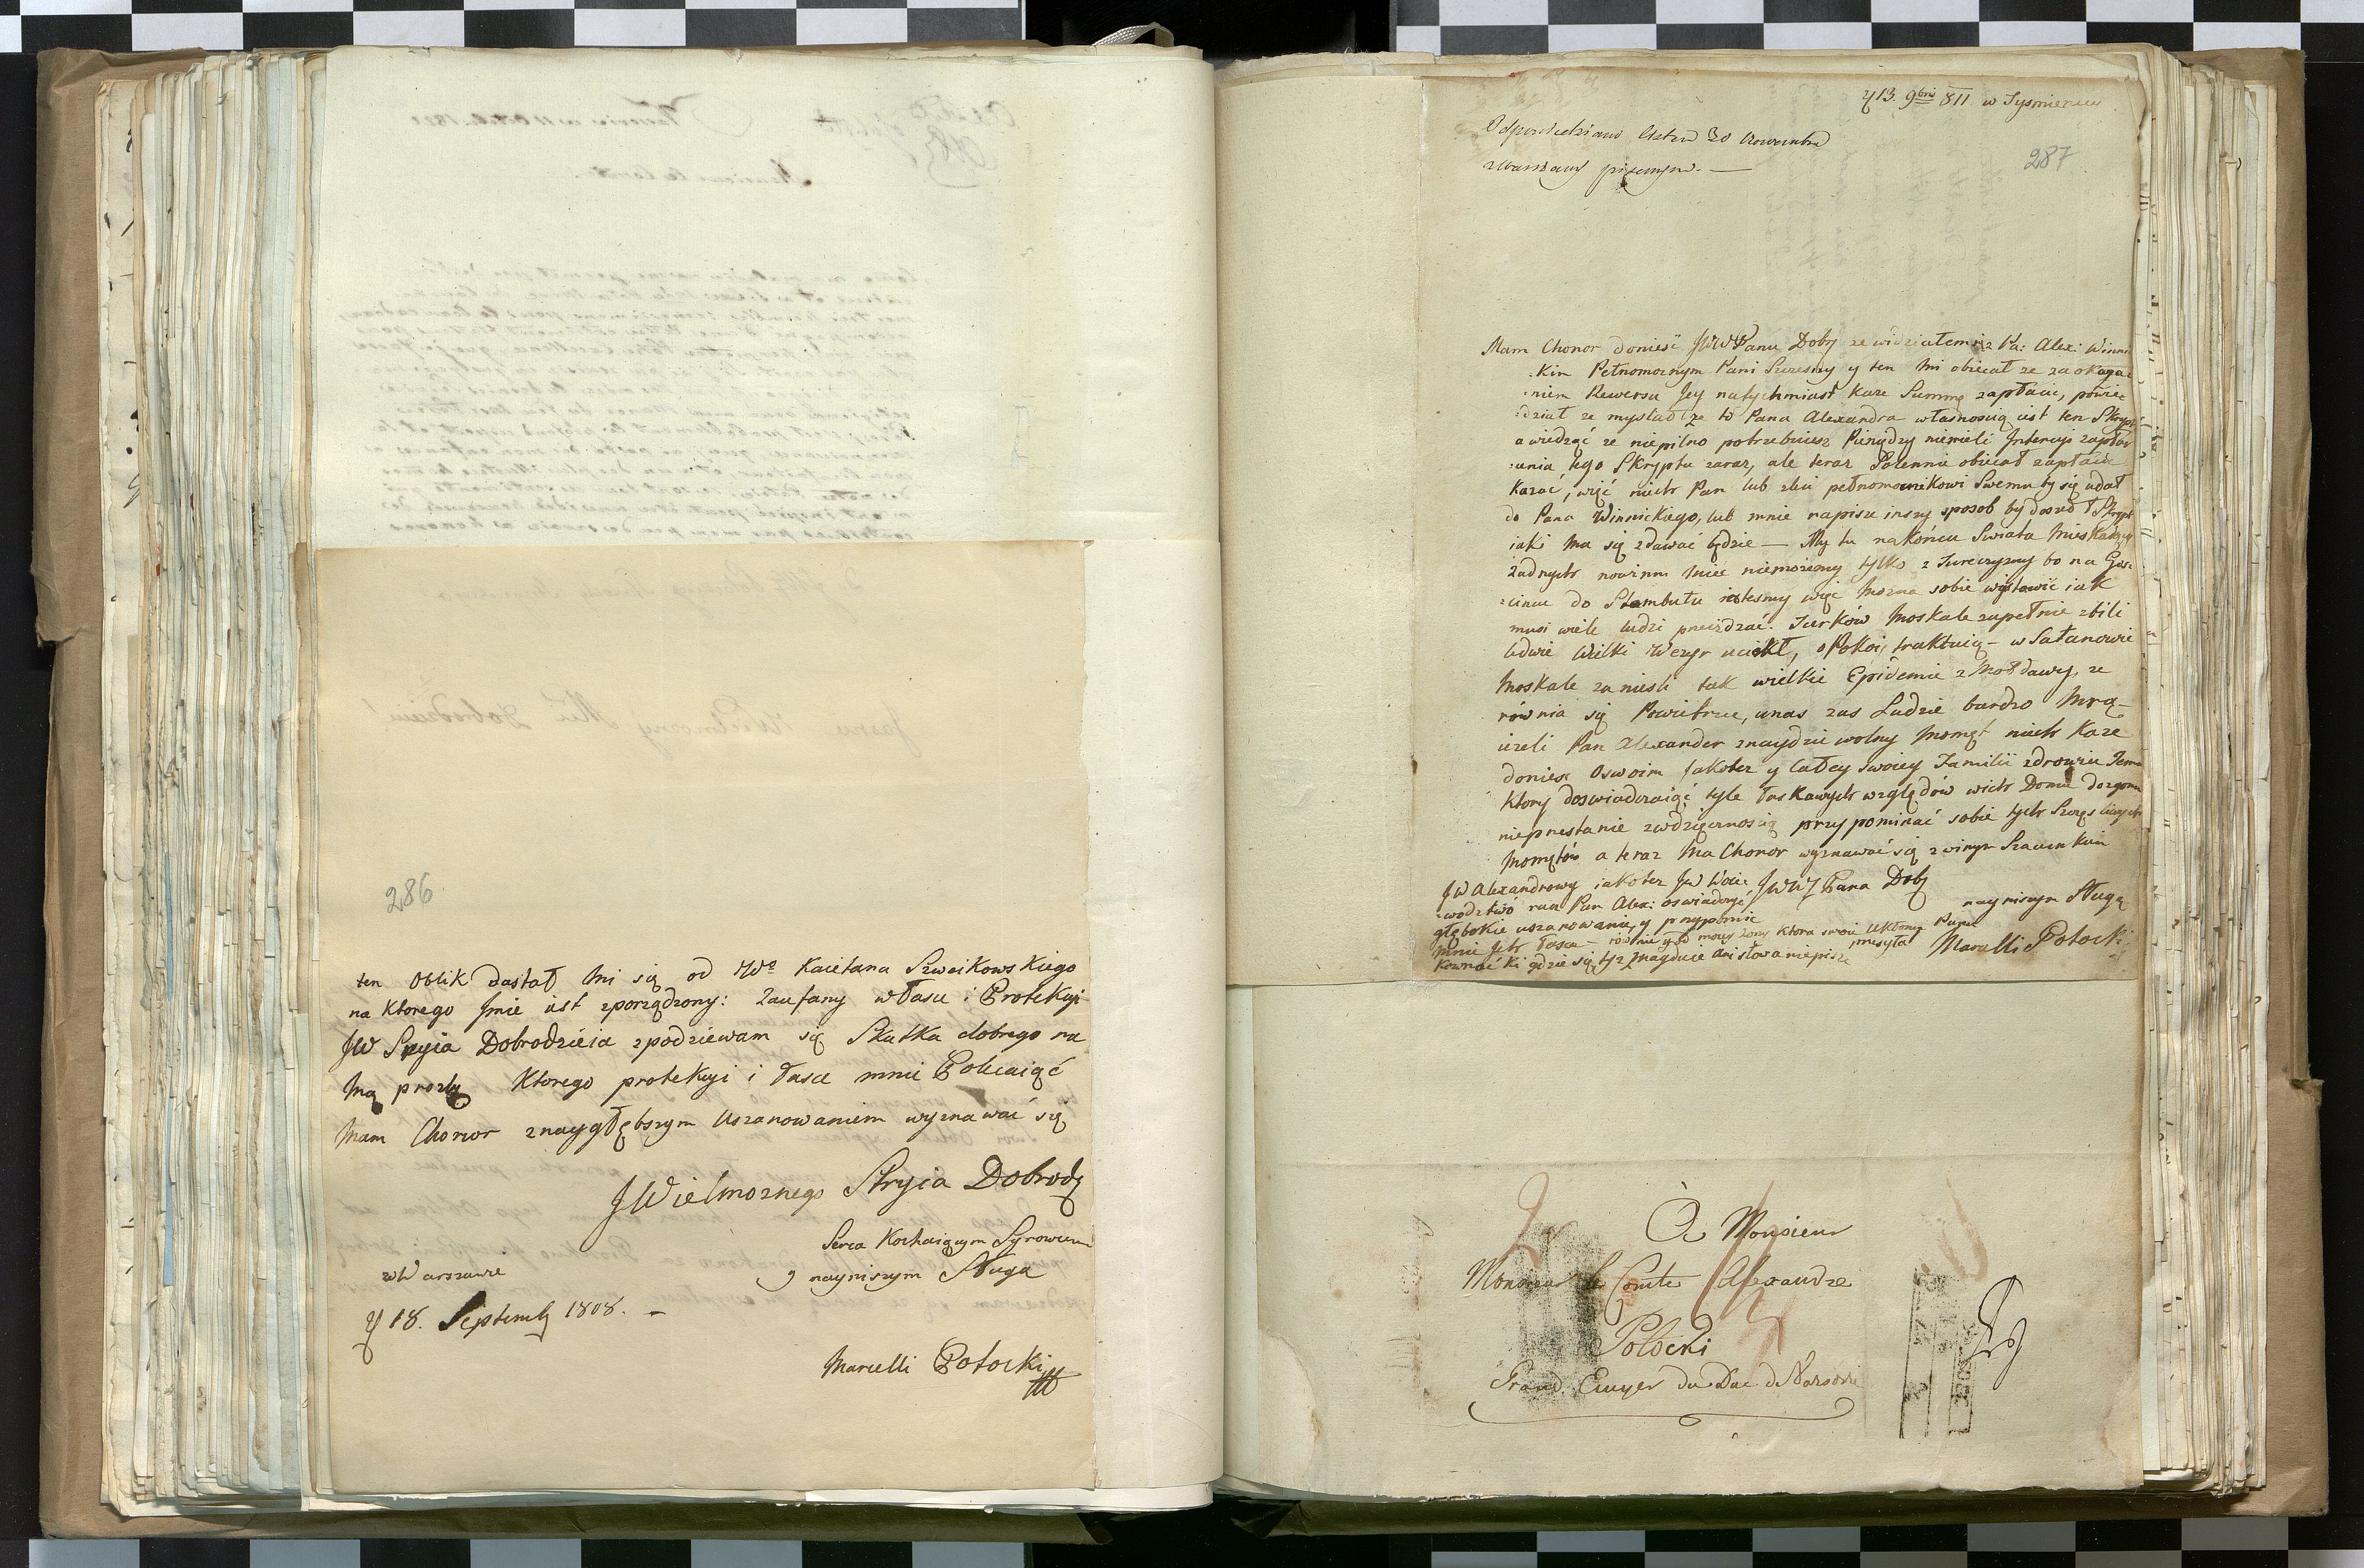 286
ten Oblik dastał mi się od Wo Kaietana Szweikowskiego
na ktorego Jmie iest zporządzony: Zaufany własce i Protekcyi
JW Stryia Dobrodzieia zpodziewam się Skutku dobrego na
mą prozbę Ktorego protekcyi i łasce mnie Polecaiąć
mam Chonor znaygłębszym Uszanowaniem wyznawać się
JWielmoznego Stryia Dobrodz
Serca Kochaiącym Synowcem
y nayniszym Sługa
w Warszawie
y 18. Septemb 1808. –
Marcelli Potocki
y 13. 9bris 811 w Tysmienicy
Odpowiedziano listem 30 Novembra
z Warszawy pisanym. —
287
Mam Chonor donieść JWW Panu Dobr ze widziałem się z Pa: Alex: Winni
:Kim Pełnomocnym Pani Szczesny y ten mi obiecał ze za okaza:
:niem Rewersu Jey natychmiast kaze Summę zapłacić, powie:
:dział ze myslał ze to Pana Alexandra własnoscią iest ten Skrypt
a wiedząć ze niepilno potrzebuiesz Pieniędzy niemieli Intencyi zapłac
:enia tego Skryptu zaraz, ale teraz Solennie obiecał zapłacic
Kazać, więć niech Pan lub zleci pełnomocnikowi Swemu by się udał
do Pana Winnickiego, lub mnie napisze inszy sposob by doszedł Skrypt
iaki mu się zdawać będzie — My tu nakońcu Swiata mieskaiący
Zadnych nowinn miec niemozemy tylko z Tureczyzny bo na Gos:
:cincu do Stambułu iestesmy więc mozna sobie wystawić iak
musi wiele ludzi przeizdzać. Turków Moskale zupełnie zbili
ledwie Wielki Wezyr uciekł, o Pokoi traktuią – w Satanowie
Moskale zaniesli tak wielkie Epidemie z Mołdawy, ze
równia się Powietrzu, unas zas Ludzie bardzo mrą –
iezeli Pan Alexander znaydzie wolny momęt niech Kaze
doniesc Oswoim Jakotez y Całey swoiey Familii zdrowiu Temu
Ktory doswiadczaiąć tyle Łaskawych względów wich Domu dozgonu
nieprzestanie zwdzięcznoscią przypominać sobie tych Szczęsliwych
Momętów a teraz ma Chonor wyznawać się z winym Szacunkiem
JWWJ Pana Dobr
nayniszym Sługą
Marcelli Potocki
JW Alexandrowy iakotez JW Woie:
:wodztwó racz Pan Alex: oswiadczyć
głębokie uszanowanie, y przypomnie
mnie Ich łasce – rownie y od moiey zony ktora swoie Ukłony Panu przesyła
Kownacki gdzie się tysz znayduie ani słowa niepisze
À Monsieur
Monsieur le Comte Alexandre
Potocki
Grand Ecuyer du Duc de Varsovie